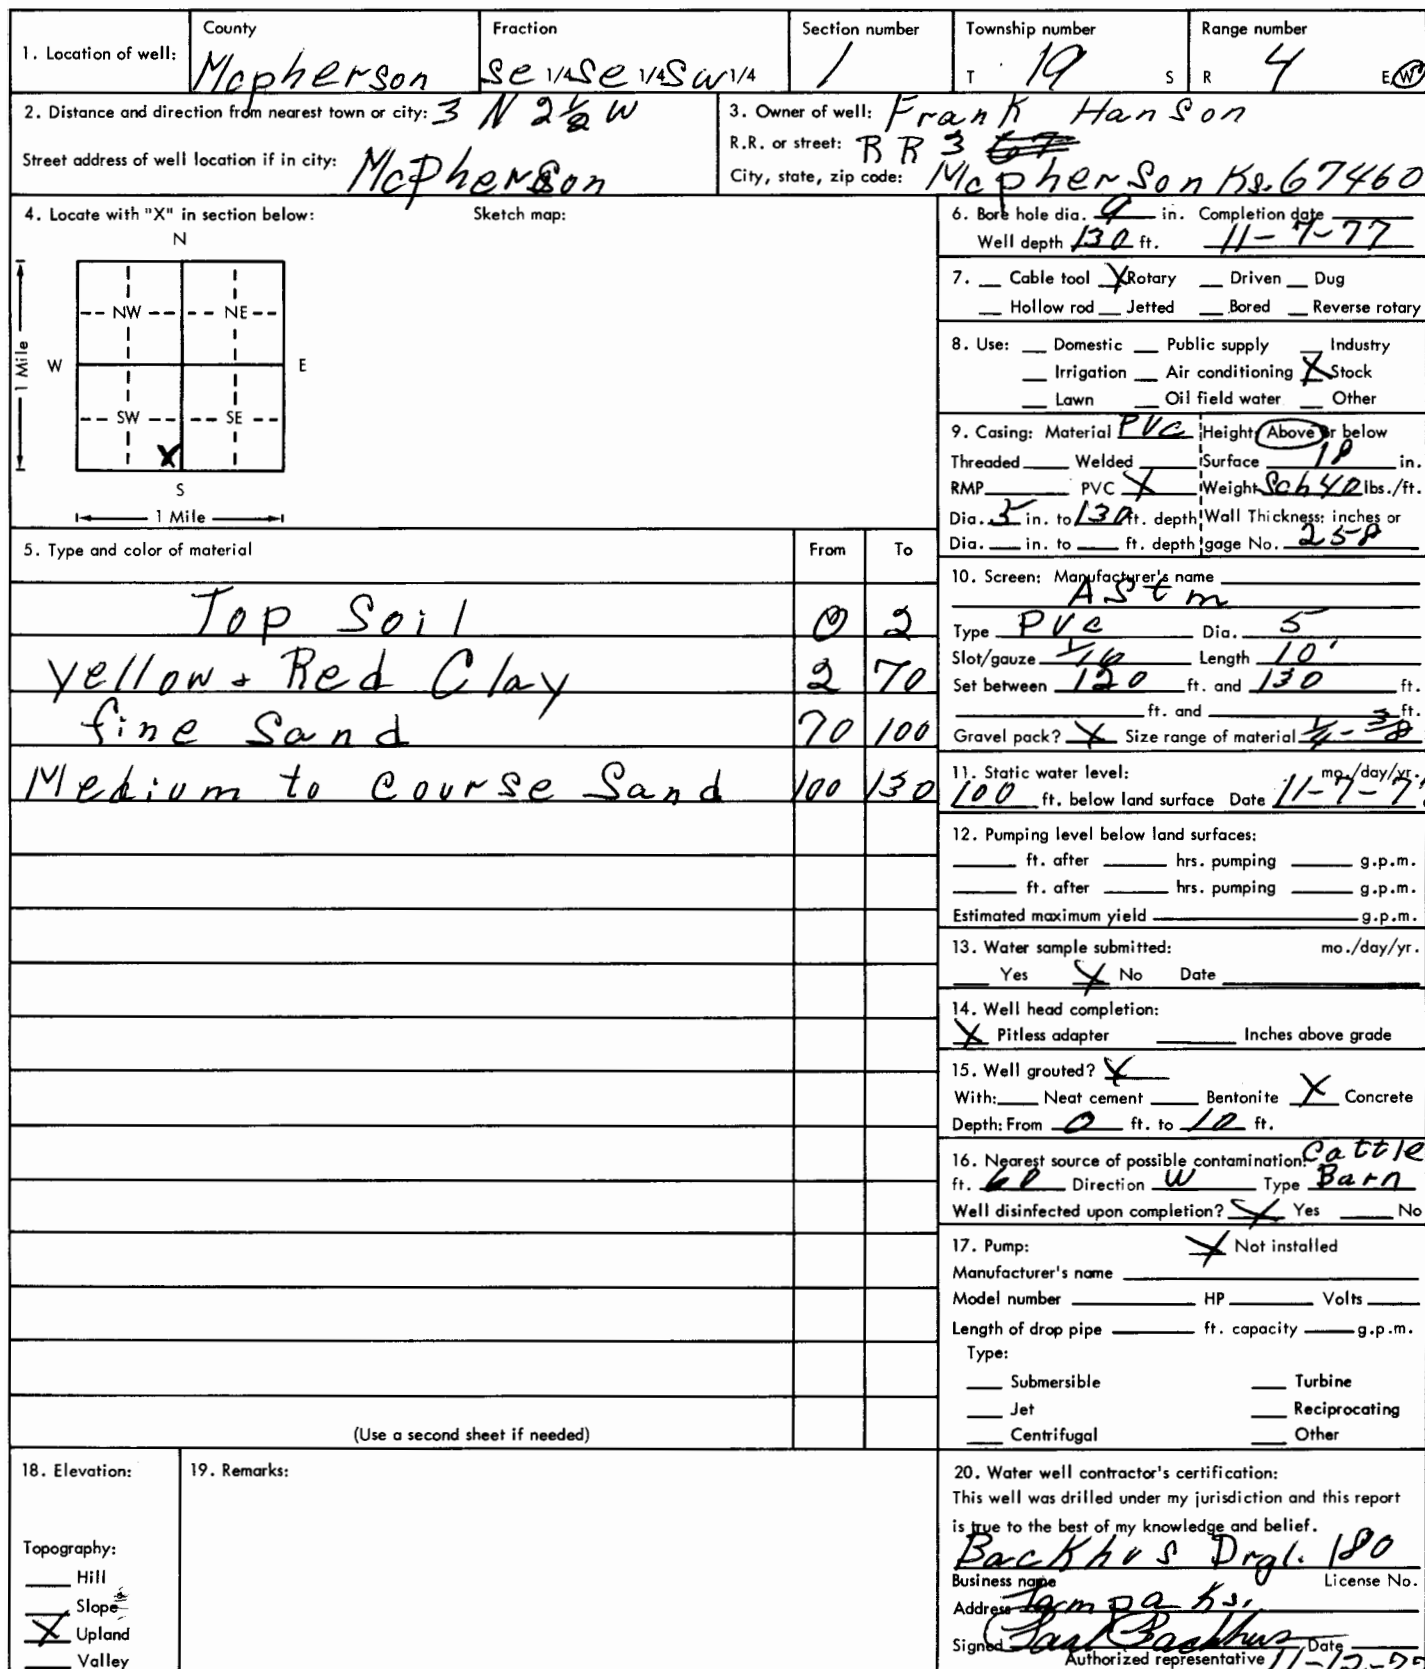 County Fraction Section number Township number Range number
1. Location of well: Mcpherson Se 1/4 Se 1/4 Sw 1/4 1 T 19 S R 4 E W
2. Distance and direction from nearest town or city: 3 N 2 1/2 W
Street address of well location if in city: McPherson
3. Owner of well: Frank Hanson
R.R. or street: RR 3
City, state, zip code: Mcpherson Ks. 67460
4. Locate with "X" in section below: Sketch map:
N
NW NE
1 Mile W E
SW SE
X
S
1 Mile
5. Type and color of material From To
Top Soil 0 2
yellow + Red Clay 2 70
fine Sand 70 100
Medium to Course Sand 100 130
(Use a second sheet if needed)
6. Bore hole dia. 9 in. Completion date
Well depth 130 ft. 11-7-77
7. __ Cable tool X Rotary __ Driven __ Dug
__ Hollow rod __ Jetted __ Bored __ Reverse rotary
8. Use: __ Domestic __ Public supply __ Industry
__ Irrigation __ Air conditioning X Stock
__ Lawn __ Oil field water __ Other
9. Casing: Material PVC Height: Above or below
Threaded ____ Welded ____ Surface 18 in.
RMP ____ PVC X Weight Sch 40 lbs./ft.
Dia. 5 in. to 130 ft. depth Wall Thickness: inches or
Dia. ___ in. to ___ ft. depth gage No. 258
10. Screen: Manufacturer's name
AStm
Type PVC Dia. 5
Slot/gauze 1/16 Length 10'
Set between 120 ft. and 130 ft.
____ ft. and ____ ft.
Gravel pack? X Size range of material 1/4 - 3/8
11. Static water level: mo./day/yr.
100 ft. below land surface Date 11-7-7
12. Pumping level below land surfaces:
____ ft. after ____ hrs. pumping ____ g.p.m.
____ ft. after ____ hrs. pumping ____ g.p.m.
Estimated maximum yield ____ g.p.m.
13. Water sample submitted: mo./day/yr.
__ Yes X No Date ____
14. Well head completion:
X Pitless adapter ____ Inches above grade
15. Well grouted? X
With: ___ Neat cement ___ Bentonite X Concrete
Depth: From 0 ft. to 10 ft.
16. Nearest source of possible contamination: Cattle
ft. 60 Direction W Type Barn
Well disinfected upon completion? X Yes ___ No
17. Pump: X Not installed
Manufacturer's name ____
Model number ____ HP ____ Volts ____
Length of drop pipe ____ ft. capacity ____ g.p.m.
Type:
___ Submersible ___ Turbine
___ Jet ___ Reciprocating
___ Centrifugal ___ Other
18. Elevation:
Topography:
___ Hill
___ Slope
X Upland
___ Valley
19. Remarks:
20. Water well contractor's certification:
This well was drilled under my jurisdiction and this report
is true to the best of my knowledge and belief.
Backhus Drgl. 180
Business name License No.
Address Tampa Ks.
Signed Paul Backhus Date
Authorized representative